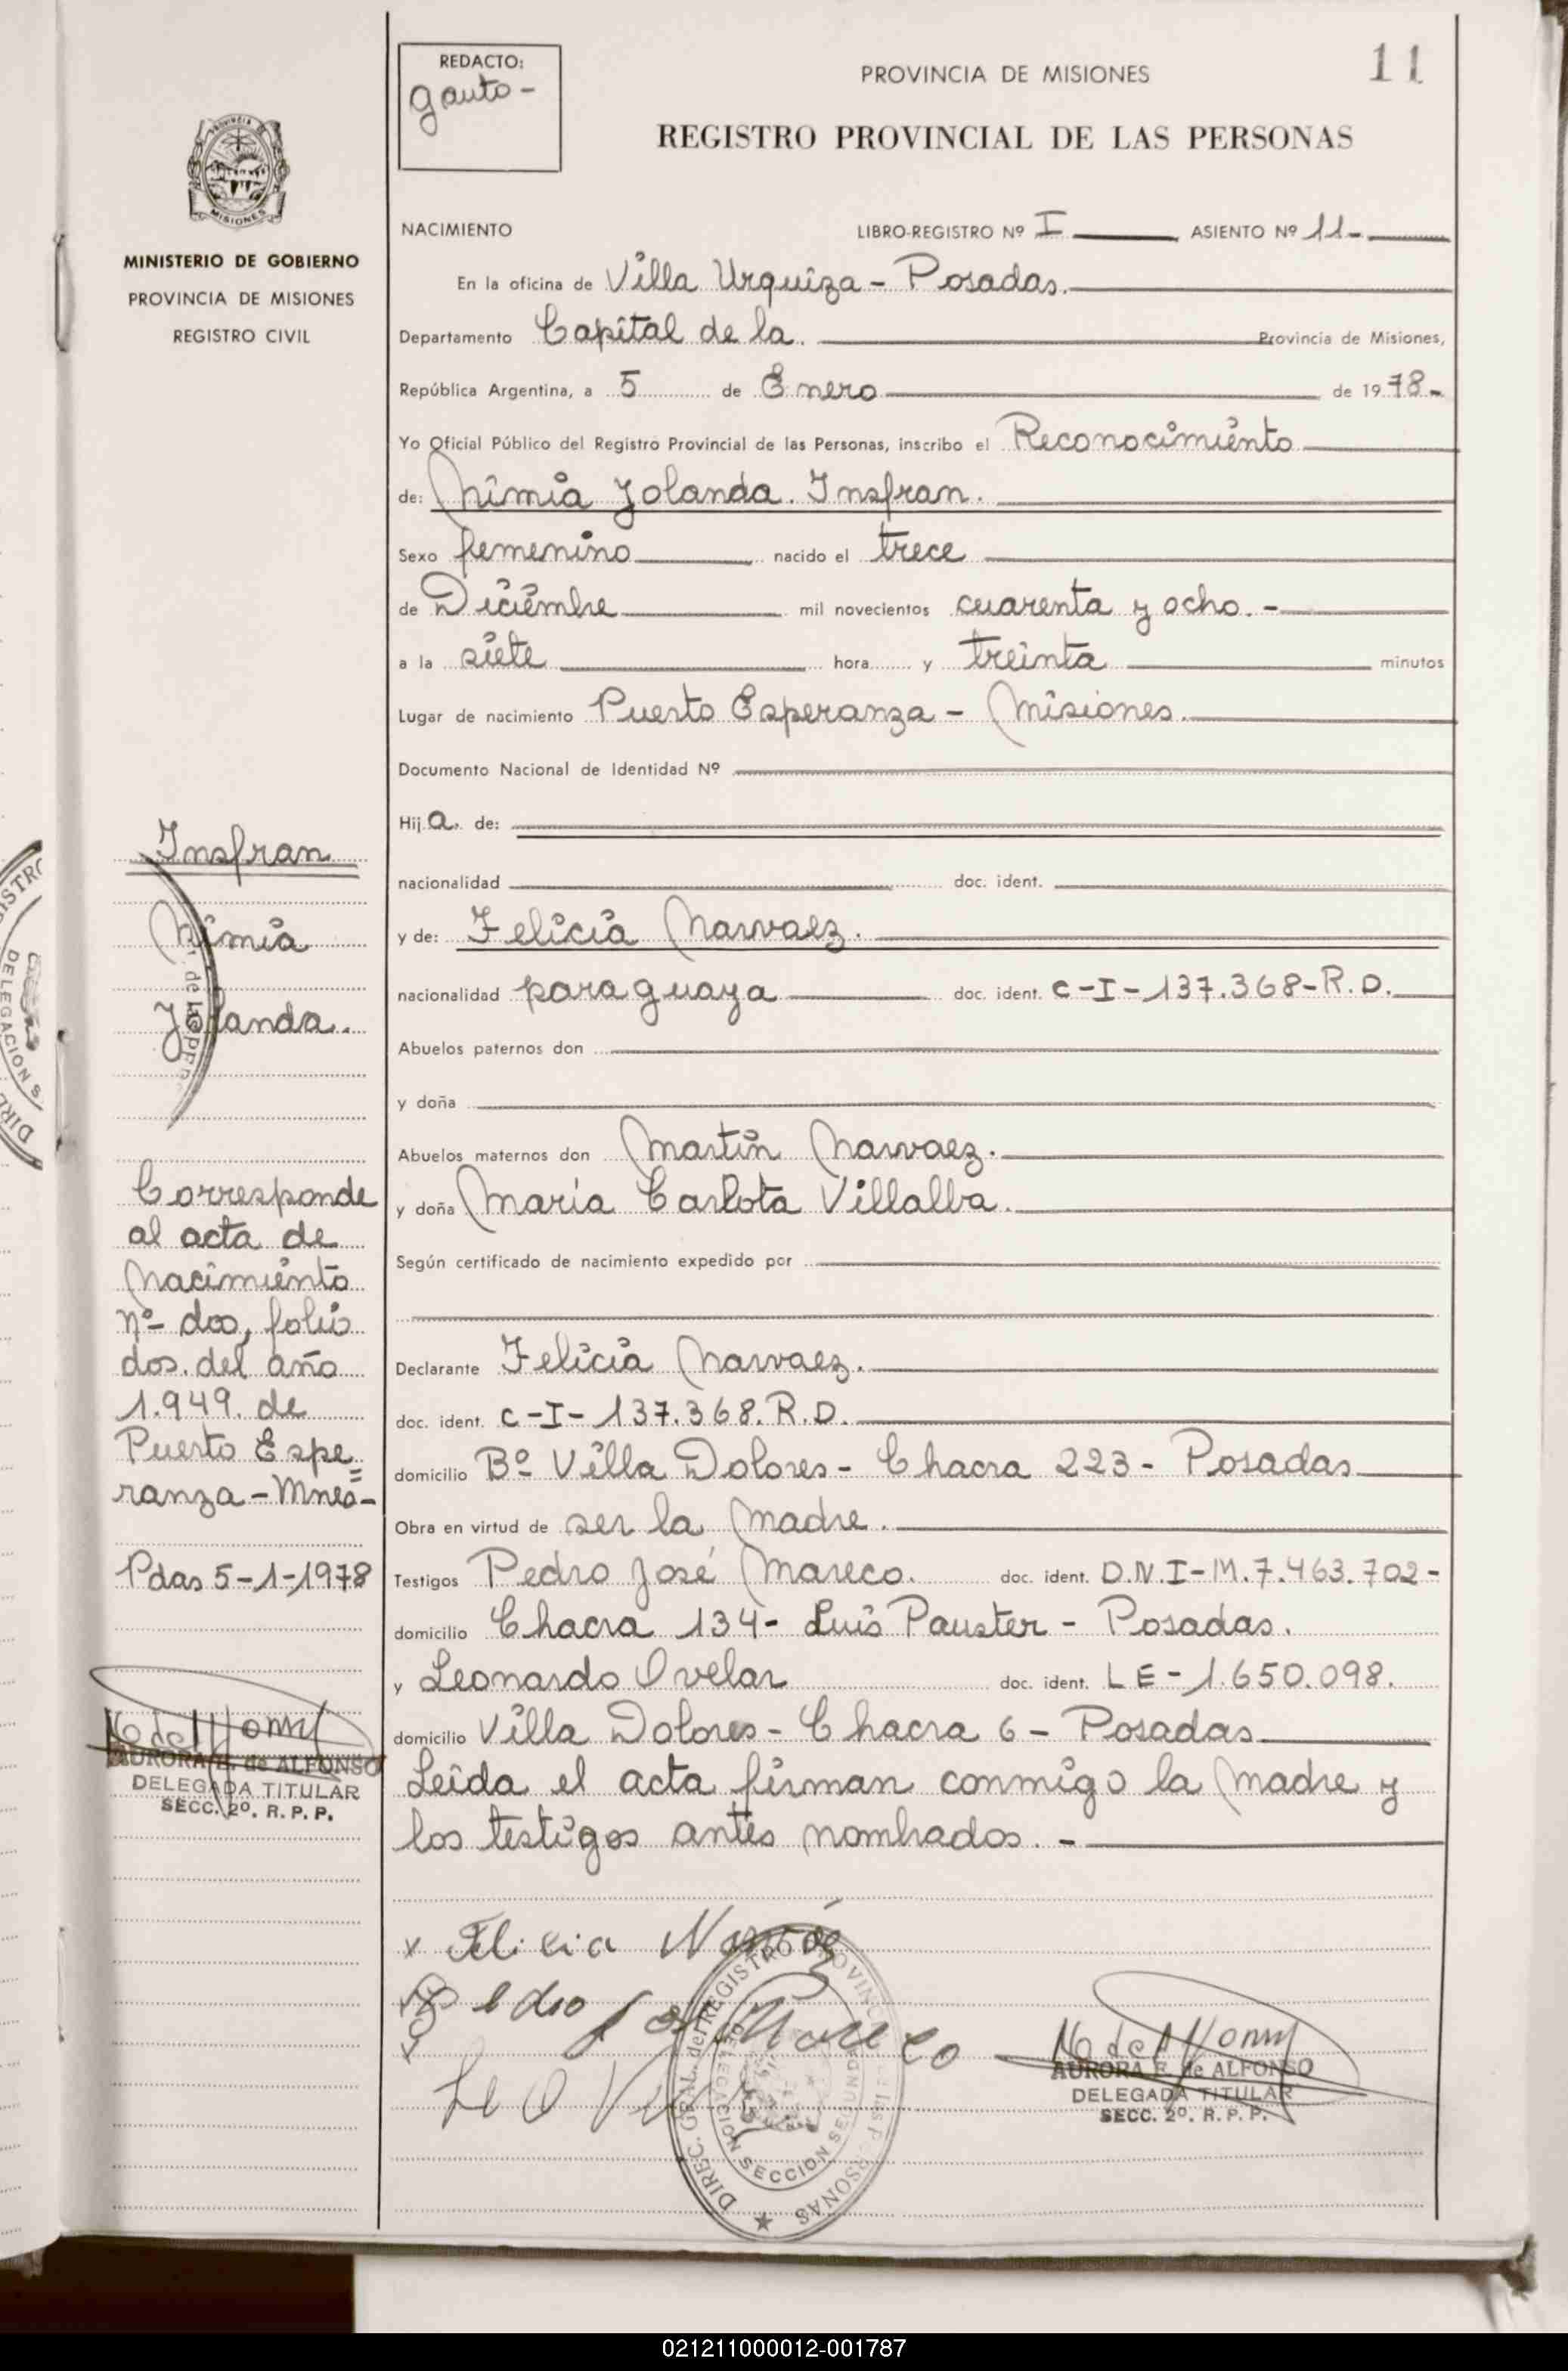 11
REDACTO:
Gauto-
PROVINCIA DE MISIONES
REGISTRO PROVINCIAL DE LAS PERSONAS
PROVINCIA DE
MISIONES
MINISTERIO DE GOBIERNO
PROVINCIA DE MISIONES
REGISTRO CIVIL
NACIMIENTO LIBRO-REGISTRO Nº I ASIENTO Nº 11-
En la oficina de Villa Urquiza - Posadas.
Departamento Capital de la Provincia de Misiones,
República Argentina, a 5 de Enero de 1978-
Yo Oficial Público del Registro Provincial de las Personas, inscribo el Reconocimiento
de: Nimia Yolanda. Insfran.
Sexo femenino nacido el trece
de Diciembre mil novecientos cuarenta y ocho.-
a la siete hora y treinta minutos
Lugar de nacimiento Puerto Esperanza - Misiones.
Documento Nacional de Identidad Nº
Hija. de:
nacionalidad doc. ident.
y de: Felicia Narvaez.
nacionalidad paraguaya doc. ident. C-I-137.368-R.D.
Abuelos paternos don
y doña
Abuelos maternos don Martin Narvaez.
y doña María Carlota Villalba.
Según certificado de nacimiento expedido por
Declarante Felicia Narvaez.
doc. ident. C-I-137.368.R.D.
domicilio Bº Villa Dolores - Chacra 223 - Posadas
Obra en virtud de ser la Madre.
Testigos Pedro José Mareco. doc. ident. D.N.I-M.7.463.702-
domicilio Chacra 134- Luis Pauster - Posadas.
y Leonardo Ovelar doc. ident. LE-1.650.098.
domicilio Villa Dolores - Chacra 6 - Posadas
Leida el acta firman conmigo la Madre y
los testigos antes nombrados.-
Insfran
Nimia
Yolanda.
Corresponde
al acta de
Nacimiento
nº dos, folio
dos. del año
1.949. de
Puerto Espe=
ranza - Mnes-
Pdas 5-1-1978
AURORA E. de ALFONSO
DELEGADA TITULAR
SECC. 2º. R. P. P.
x Felicia Narváez
x Pedro José Mareco
DIREC. GRAL. del REGISTRO PROVINCIAL de las PERSONAS
DELEGACION SECCION SEGUNDA
AURORA E. de ALFONSO
DELEGADA TITULAR
SECC. 2º. R. P. P.
021211000012-001787